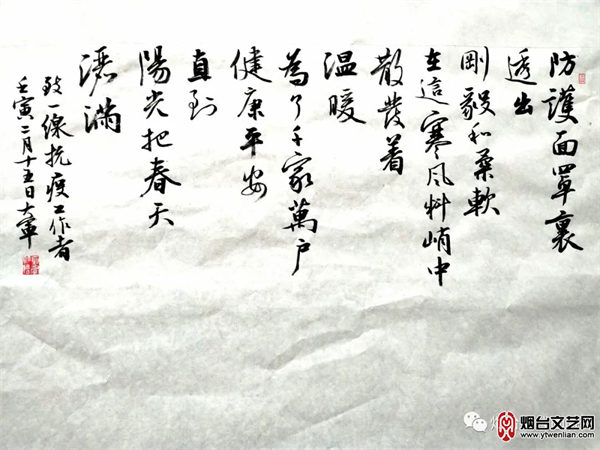 防護面罩裏
透出
剛毅和柔軟
在這寒风料峭中
散發着
温暖
為了千家萬户
健康平安
直到
陽光把春天
洒滿
致一線抗疫工作者
壬寅二月十五日大軍
烟台文艺网
www.ytwenlian.com